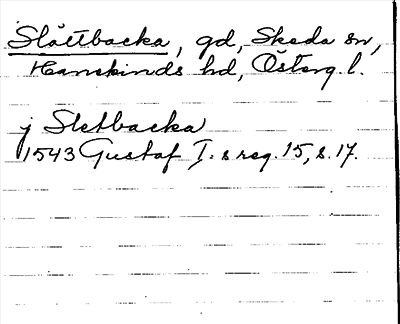 Slåttbacka, gd, Skeda sn,
Hanekinds hd, Österg l.
j Sletbacka
1543 Gustaf I:s reg. 15, s. 17.